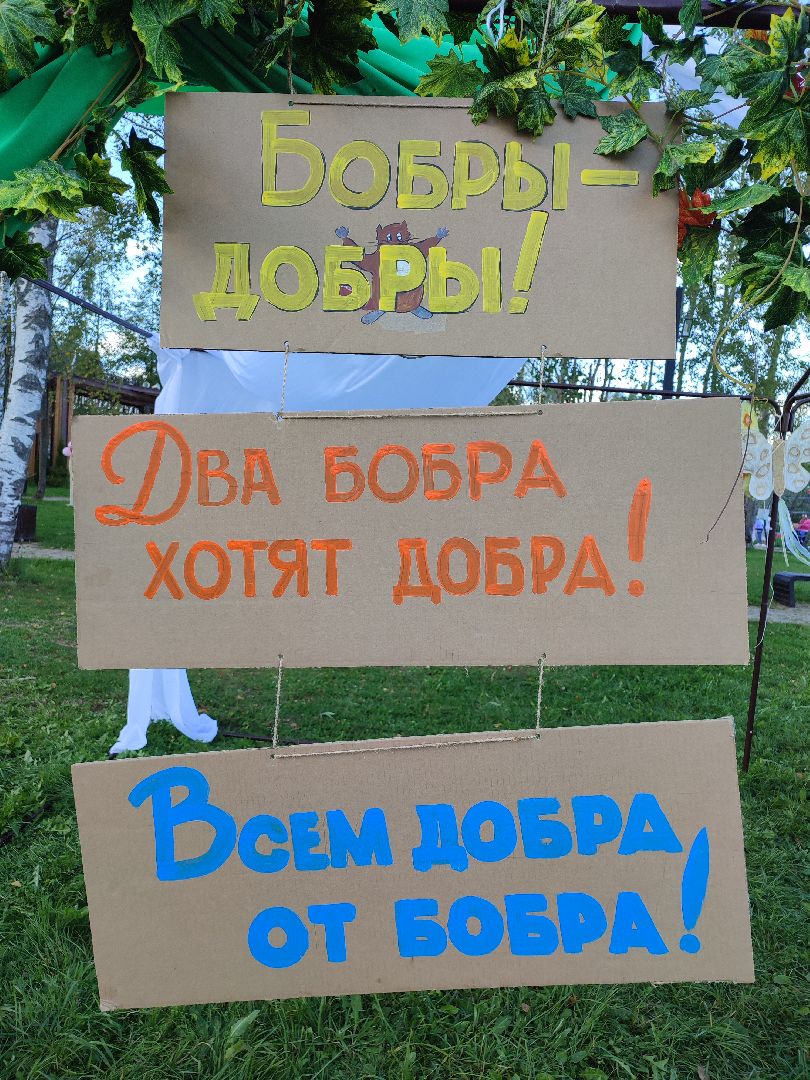 Бобры-
добры!
Два бобра
хотят добра!
Всем добра
от бобра!